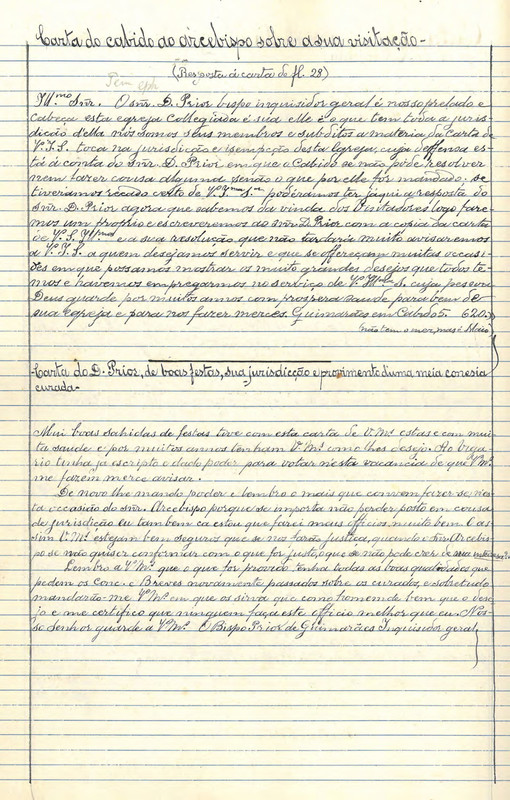 Carta do cabido ao arcebispo sobre a sua visitação-
(Resposta á carta de fl. 28)
Ill.mo Snr. O snr. D. Prior bispo inquisidor geral é nosso prelado e
cabeça esta egreja Collegiada é sua elle é o que tem toda a juris-
dicção d'ella nós somos seus membros e subditos a materia da carta de
V.I.S. toca na jurisdicção e isempção desta Egreja, cuja deffensa es-
tá á conta do snr. D. Prior em que o Cabido se não pode resolver
nem fazer cousa alguma senão o que por elle for mandado, se
tiveramos recado certo de V.S. podiramos ter já qui a resposta do
snr. D. Prior agora que sabemos da vinda dos Visitadores logo fare-
mos um proprio e escreveremos ao snr. D. Prior com a copia da carta
de V.S. Ill.ma e a sua resolução, que não tardará muito avisaremos
a V.S.I. a quem desejamos servir e que se offereçam muitas occasi-
ões em que possamos mostrar os muito grandes desejos que todos te-
mos e havemos empregarmos no serviço de V.Ill.ma S. cuja pessoa
Deus guarde por muitos annos com prospera saude para bem de
sua egreja e para nos fazer mercês. Guimarães em Cabido 5. 620
(não tem o mez, mas é Maio)
Carta do D. Prior, de boas festas, sua jurisdicção e provimento d'uma meia conesia
curada-
Mui boas sahidas de festas tive com esta carta de V. M.es estas e com mui-
ta saude e por muitos annos tenham V. M.es como lhes desejo. Ao Viga-
rio tinha já escripto e dado poder para votar n'esta vacancia de que V. M.es
me fazem merce avisar.
De novo lhe mando poder e lembro o mais que convem fazer-se nes-
ta occasião do snr. Arcebispo porque se importa não perder posto em cousa
de jurisdicção eu tambem cá estou que farei mais officios muito bem. E as-
sim V. M.es estejam bem seguros que se nos farão justiça, quando o snr. Arcebis-
po se não quiser conformar com o que for justo que se não pode crer de sua
Lembro a V. M.es que o que for provido tenha todas as boas qualidades que
pedem os Conc. e Breves novamente passados sobre os curados, e sobretudo
mandarão-me V. M.es em que os sirva que como homem de bem que o dese-
jo e me certifico que ninguem faça este officio melhor que eu. Nos-
so Senhor guarde a V. M.es O Bispo Prior de Guimarães Inquisidor geral